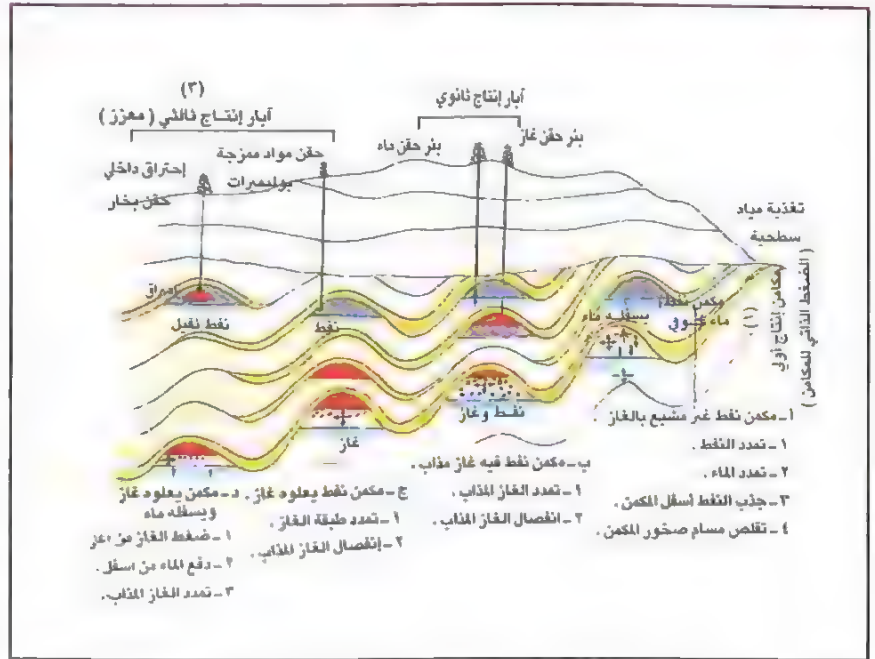 آبار إنتاج ثانوي
بئر حقن غاز
بئر حقن ماء
(٣)
آبار إنتاج ثالثي ( معزز )
حقن مواد ممزجة
بوليمرات
إحتراق داخلي
حقن بخار
تغذية مياه
سطحية
(١)
مكامن إنتاج أولي
( الضغط الذاتي للمكامن )
مكمن نفط
يسفله ماء
ماء
نفط
نفط ثقيل
نفط وغاز
غاز
أ ـ مكمن نفط غير مشبع بالغاز .
١ ـ تمدد النفط .
٢ ـ تمدد الماء .
٣ ـ جذب النفط أسفل المكمن .
٤ ـ تقلص مسام صخور المكمن .
ب ـ مكمن نفط فيه غاز مذاب .
١ ـ تمدد الغاز المذاب .
٢ ـ انفصال الغاز المذاب .
ج ـ مكمن نفط يعلوه غاز .
١ ـ تمدد طبقة الغاز .
٢ ـ إنفصال الغاز المذاب .
د ـ مكمن يعلوه غاز
ويسفله ماء
١ ـ ضغط الغاز من
٢ ـ دفع الماء من اسفل .
٣ ـ تمدد الغاز المذاب .